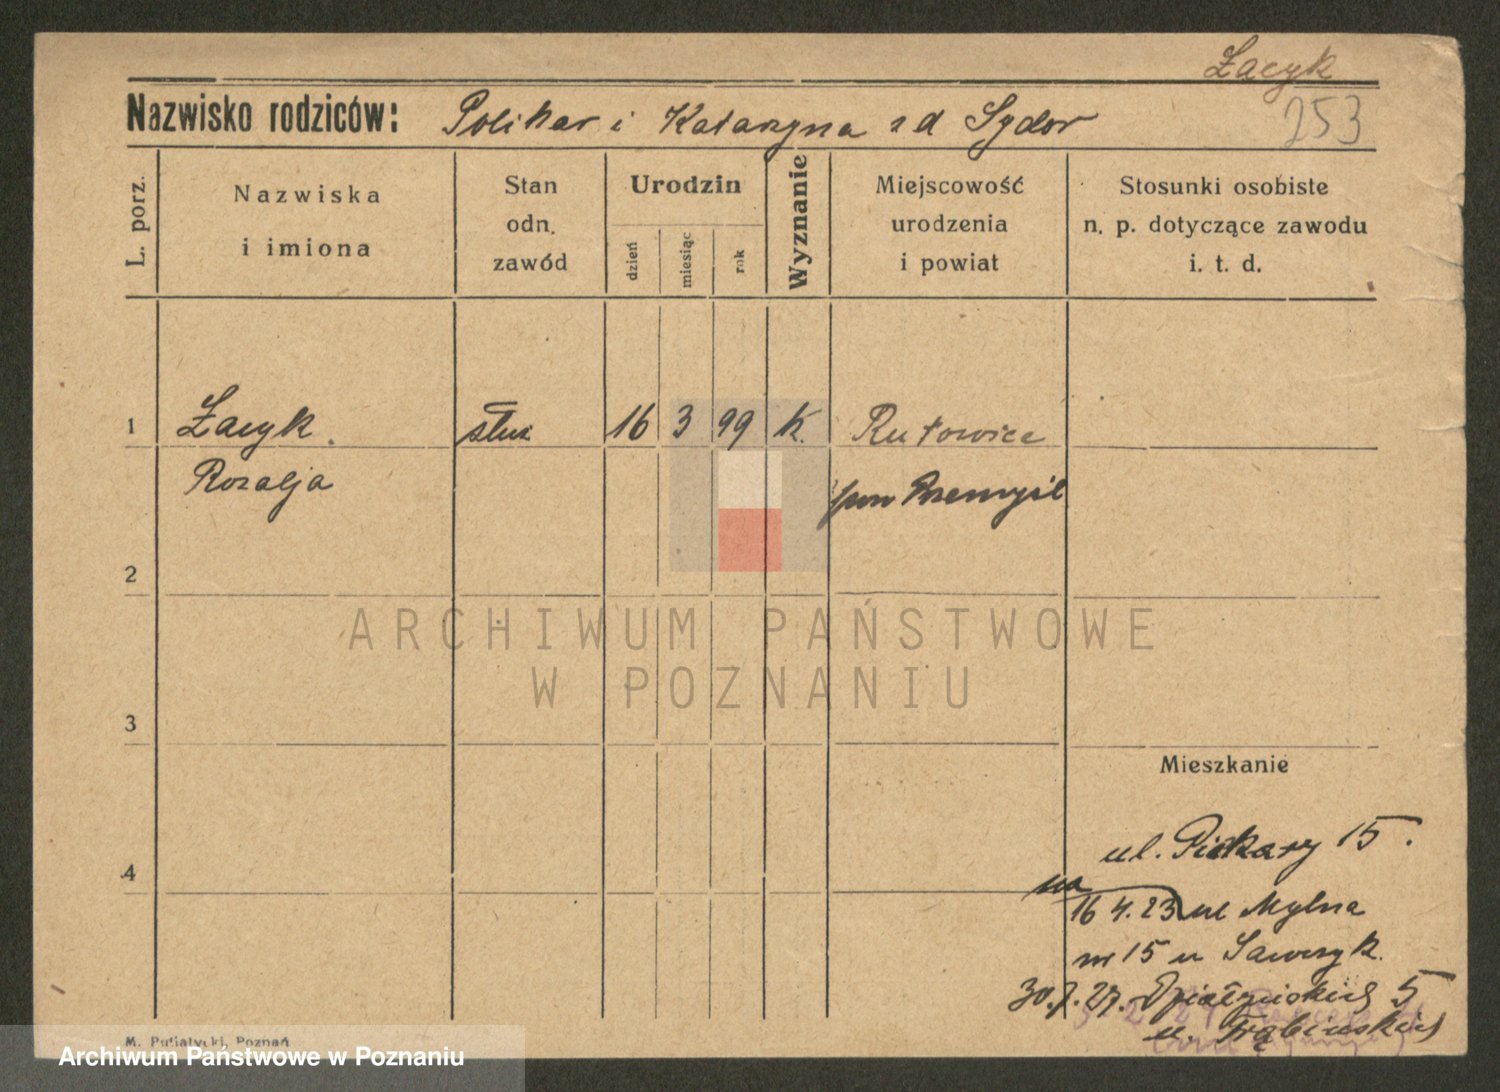 Żacyk
253
Nazwisko rodziców: Polikar i Katarzyna z d Sydor
L. porz.
Nazwiska
i imiona
Stan
odn.
zawód
Urodzin
dzień
miesiąc
rok
Wyznanie
Miejscowość
urodzenia
i powiat
Stosunki osobiste
n. p. dotyczące zawodu
i. t. d.
1 Żacyk służ 16 3 99 K. Rutowice
Rozalja pow Przemyśl
2
3
4
Mieszkanie
ul. Piekary 15.
na
16 4. 23 ul Mylna
nr 15 u Sawczyk.
30.7.27. Działyńskich 5
u. Trąbińskich
M. Putiatycki, Poznań
ARCHIWUM PAŃSTWOWE
W POZNANIU
Archiwum Państwowe w Poznaniu